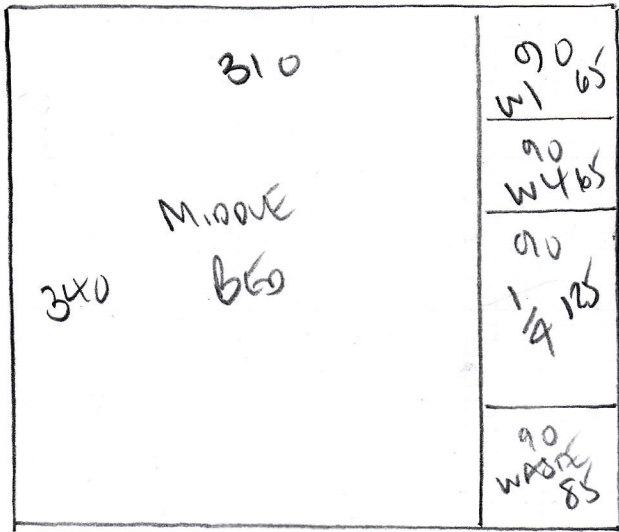 310
MIDDLE
BED
340
90
W1 65
90
W4 65
90
1/4 125
90
WASTE
85